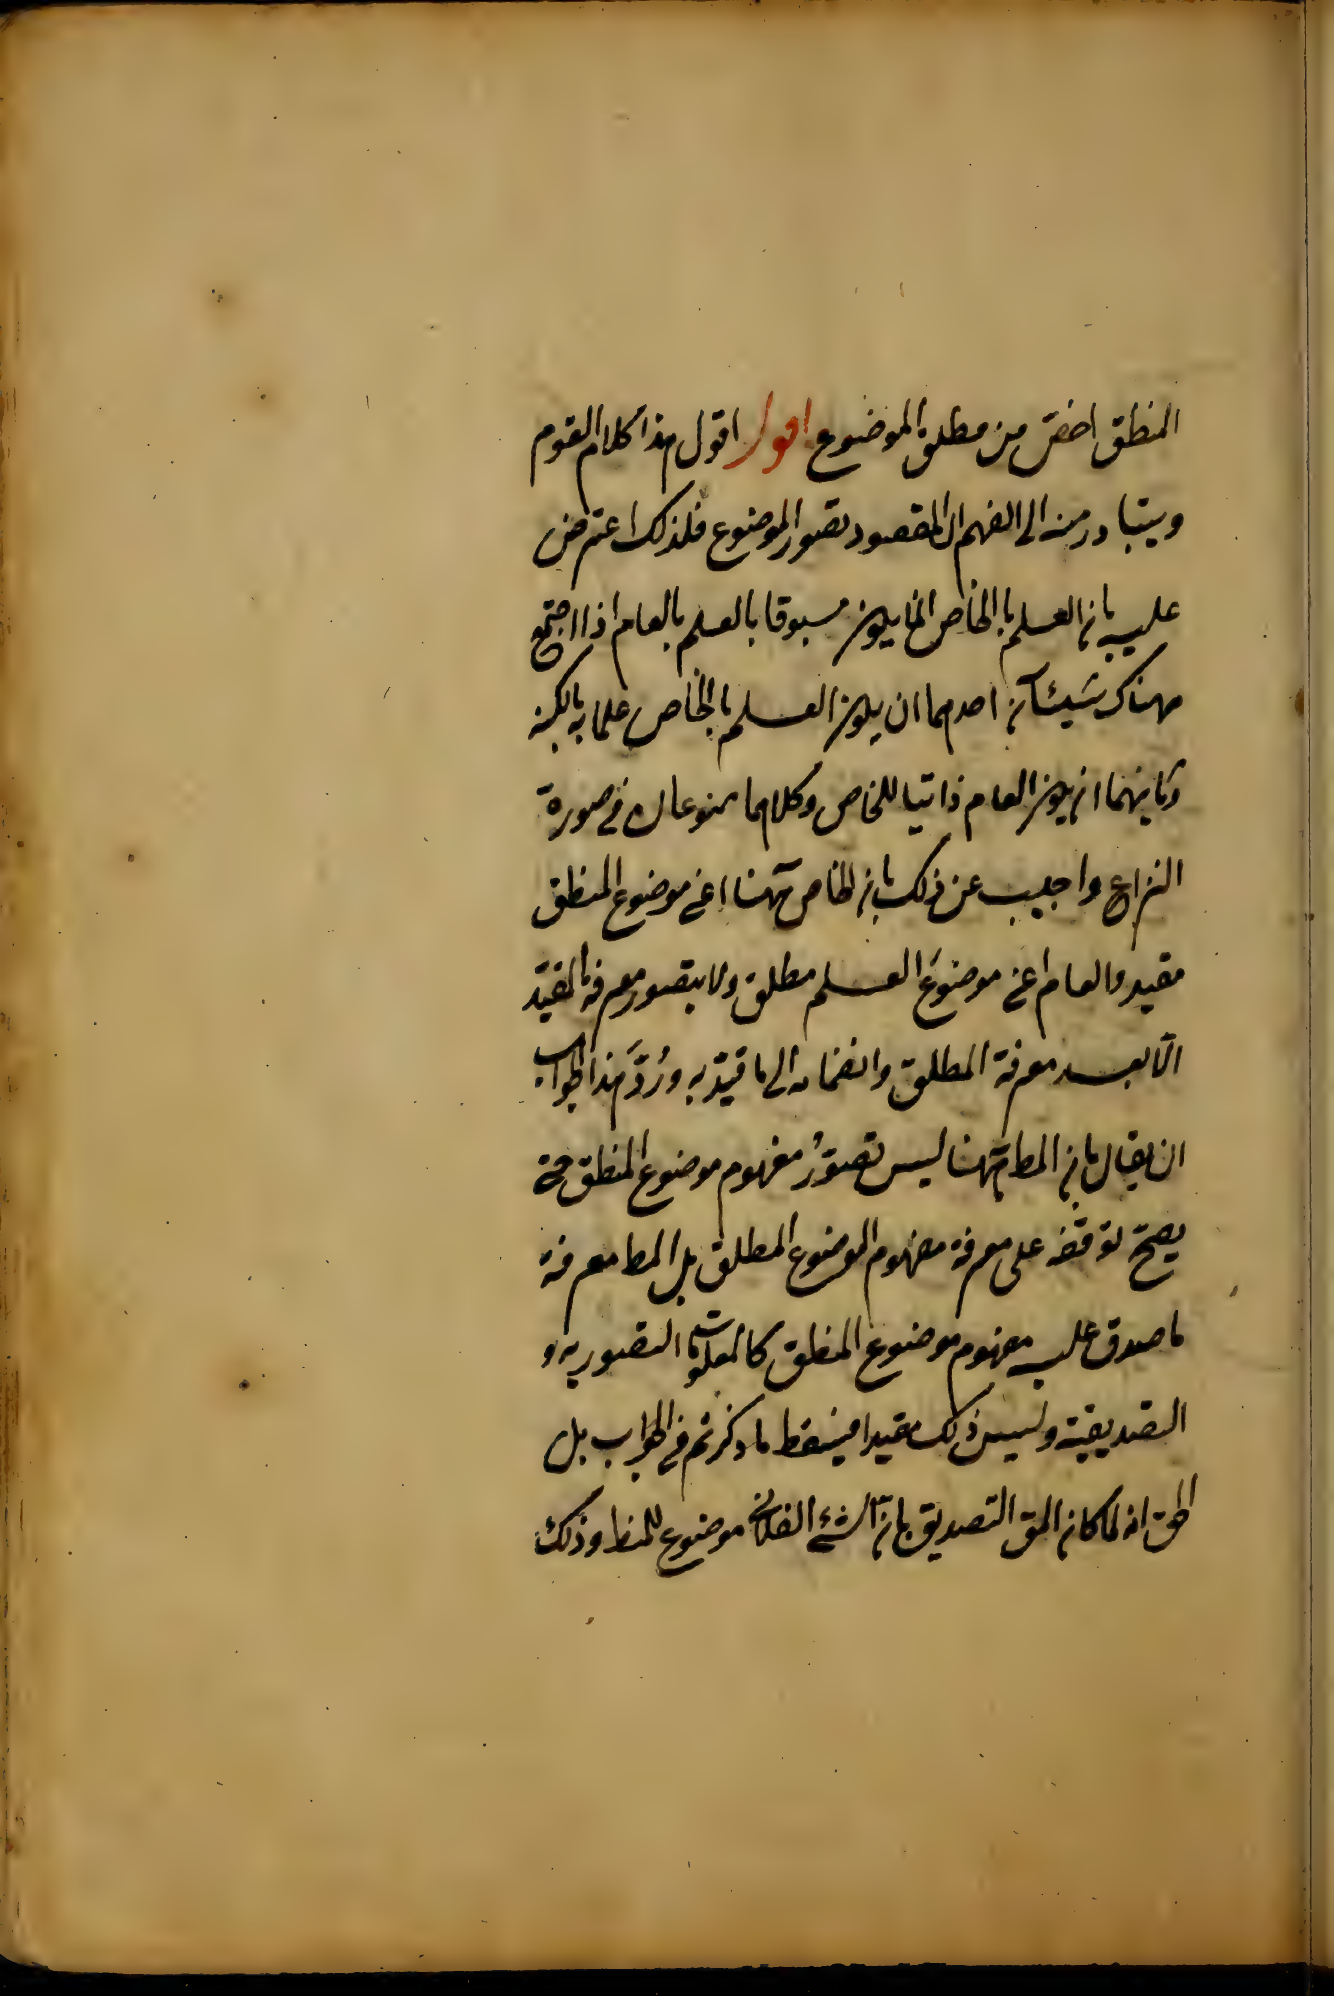 المنطق اخص من مطلق الموضوع اقول اقول هذا كلام القوم
ويتبادر منه الى الفهم ان المقصود تصور الموضوع فلذلك اعترض
عليه بان العلم بالخاص انما يكون مسبوقا بالعلم بالعام اذا اجتمع
هناك شيئآن احدهما ان يكون العلم بالخاص علما به بالكنه
وثانيهما ان يكون العام ذاتيا للخاص وكلاهما ممنوعان في صورة
النزاع واجيب عن ذلك بان الخاص ههنا اعني موضوع المنطق
مقيد والعام اعني موضوع العلم مطلق ولا يتصور معرفة المقيّد
الّا بعد معرفة المطلق وانضمامه الى ما قيّد به ورُدّ هذا الجواب
ان يقال بان المط ههنا ليس تصوّر مفهوم موضوع المنطق حتى
يصحّ توقفه على معرفة مفهوم الموضوع المطلق بل المط معرفة
ما صدق عليه مفهوم موضوع المنطق كالمعلومات التصورية و
التصديقية وليس ذلك مقيدا فيسقط ما ذكرتم في الجواب بل
الحق انه لما كان المق التصديق بانّ الشئ الفلاني موضوع للمنط وذلك